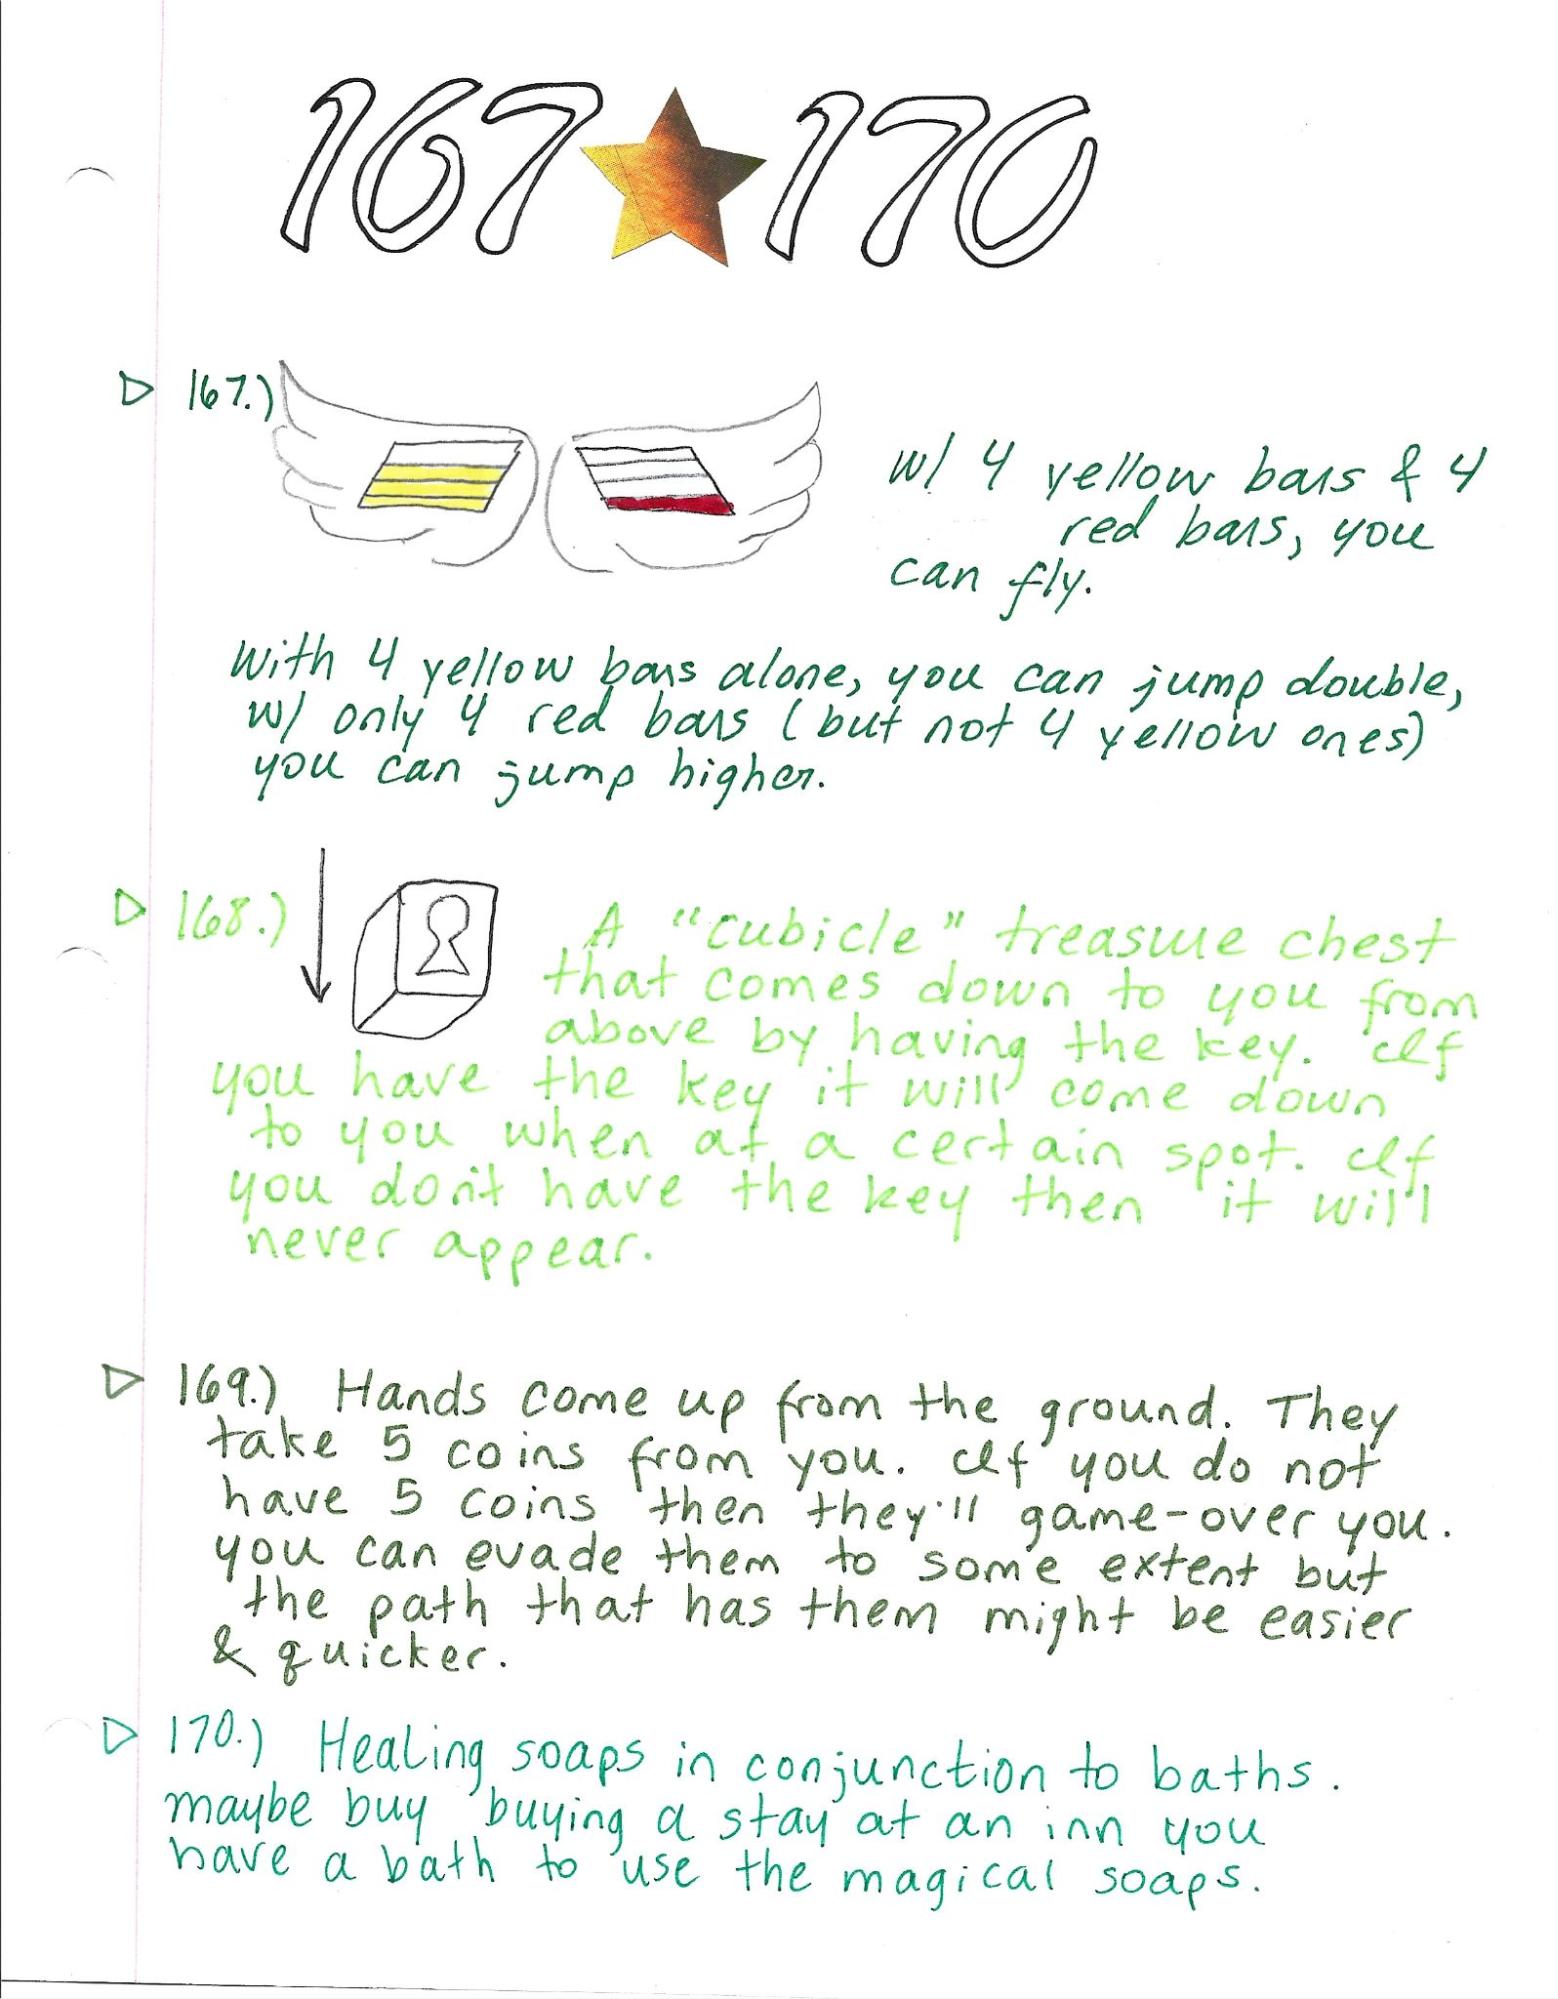 167 170
167.)
w/ 4 yellow bars & 4
red bars, you
can fly.
With 4 yellow bars alone, you can jump double,
w/ only 4 red bars (but not 4 yellow ones)
you can jump higher.
168.) A "cubicle" treasure chest
that comes down to you from
above by having the key. If
you have the key it will come down
to you when at a certain spot. If
you don't have the key then it will
never appear.
169.) Hands come up from the ground. They
take 5 coins from you. If you do not
have 5 coins then they'll game-over you.
you can evade them to some extent but
the path that has them might be easier
& quicker.
170.) Healing soaps in conjunction to baths.
maybe buy buying a stay at an inn you
have a bath to use the magical soaps.